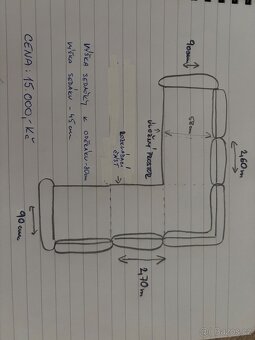 90cm
58cm
2,60m
ÚLOŽNÝ PROSTOR
ROZKLÁDACÍ
ČÁST
2,70m
90cm
VÝŠKA SEDAČKY K OPĚRÁKU-80cm
VÝŠKA SEDÁKU - 45cm
CENA: 15 000,- Kč